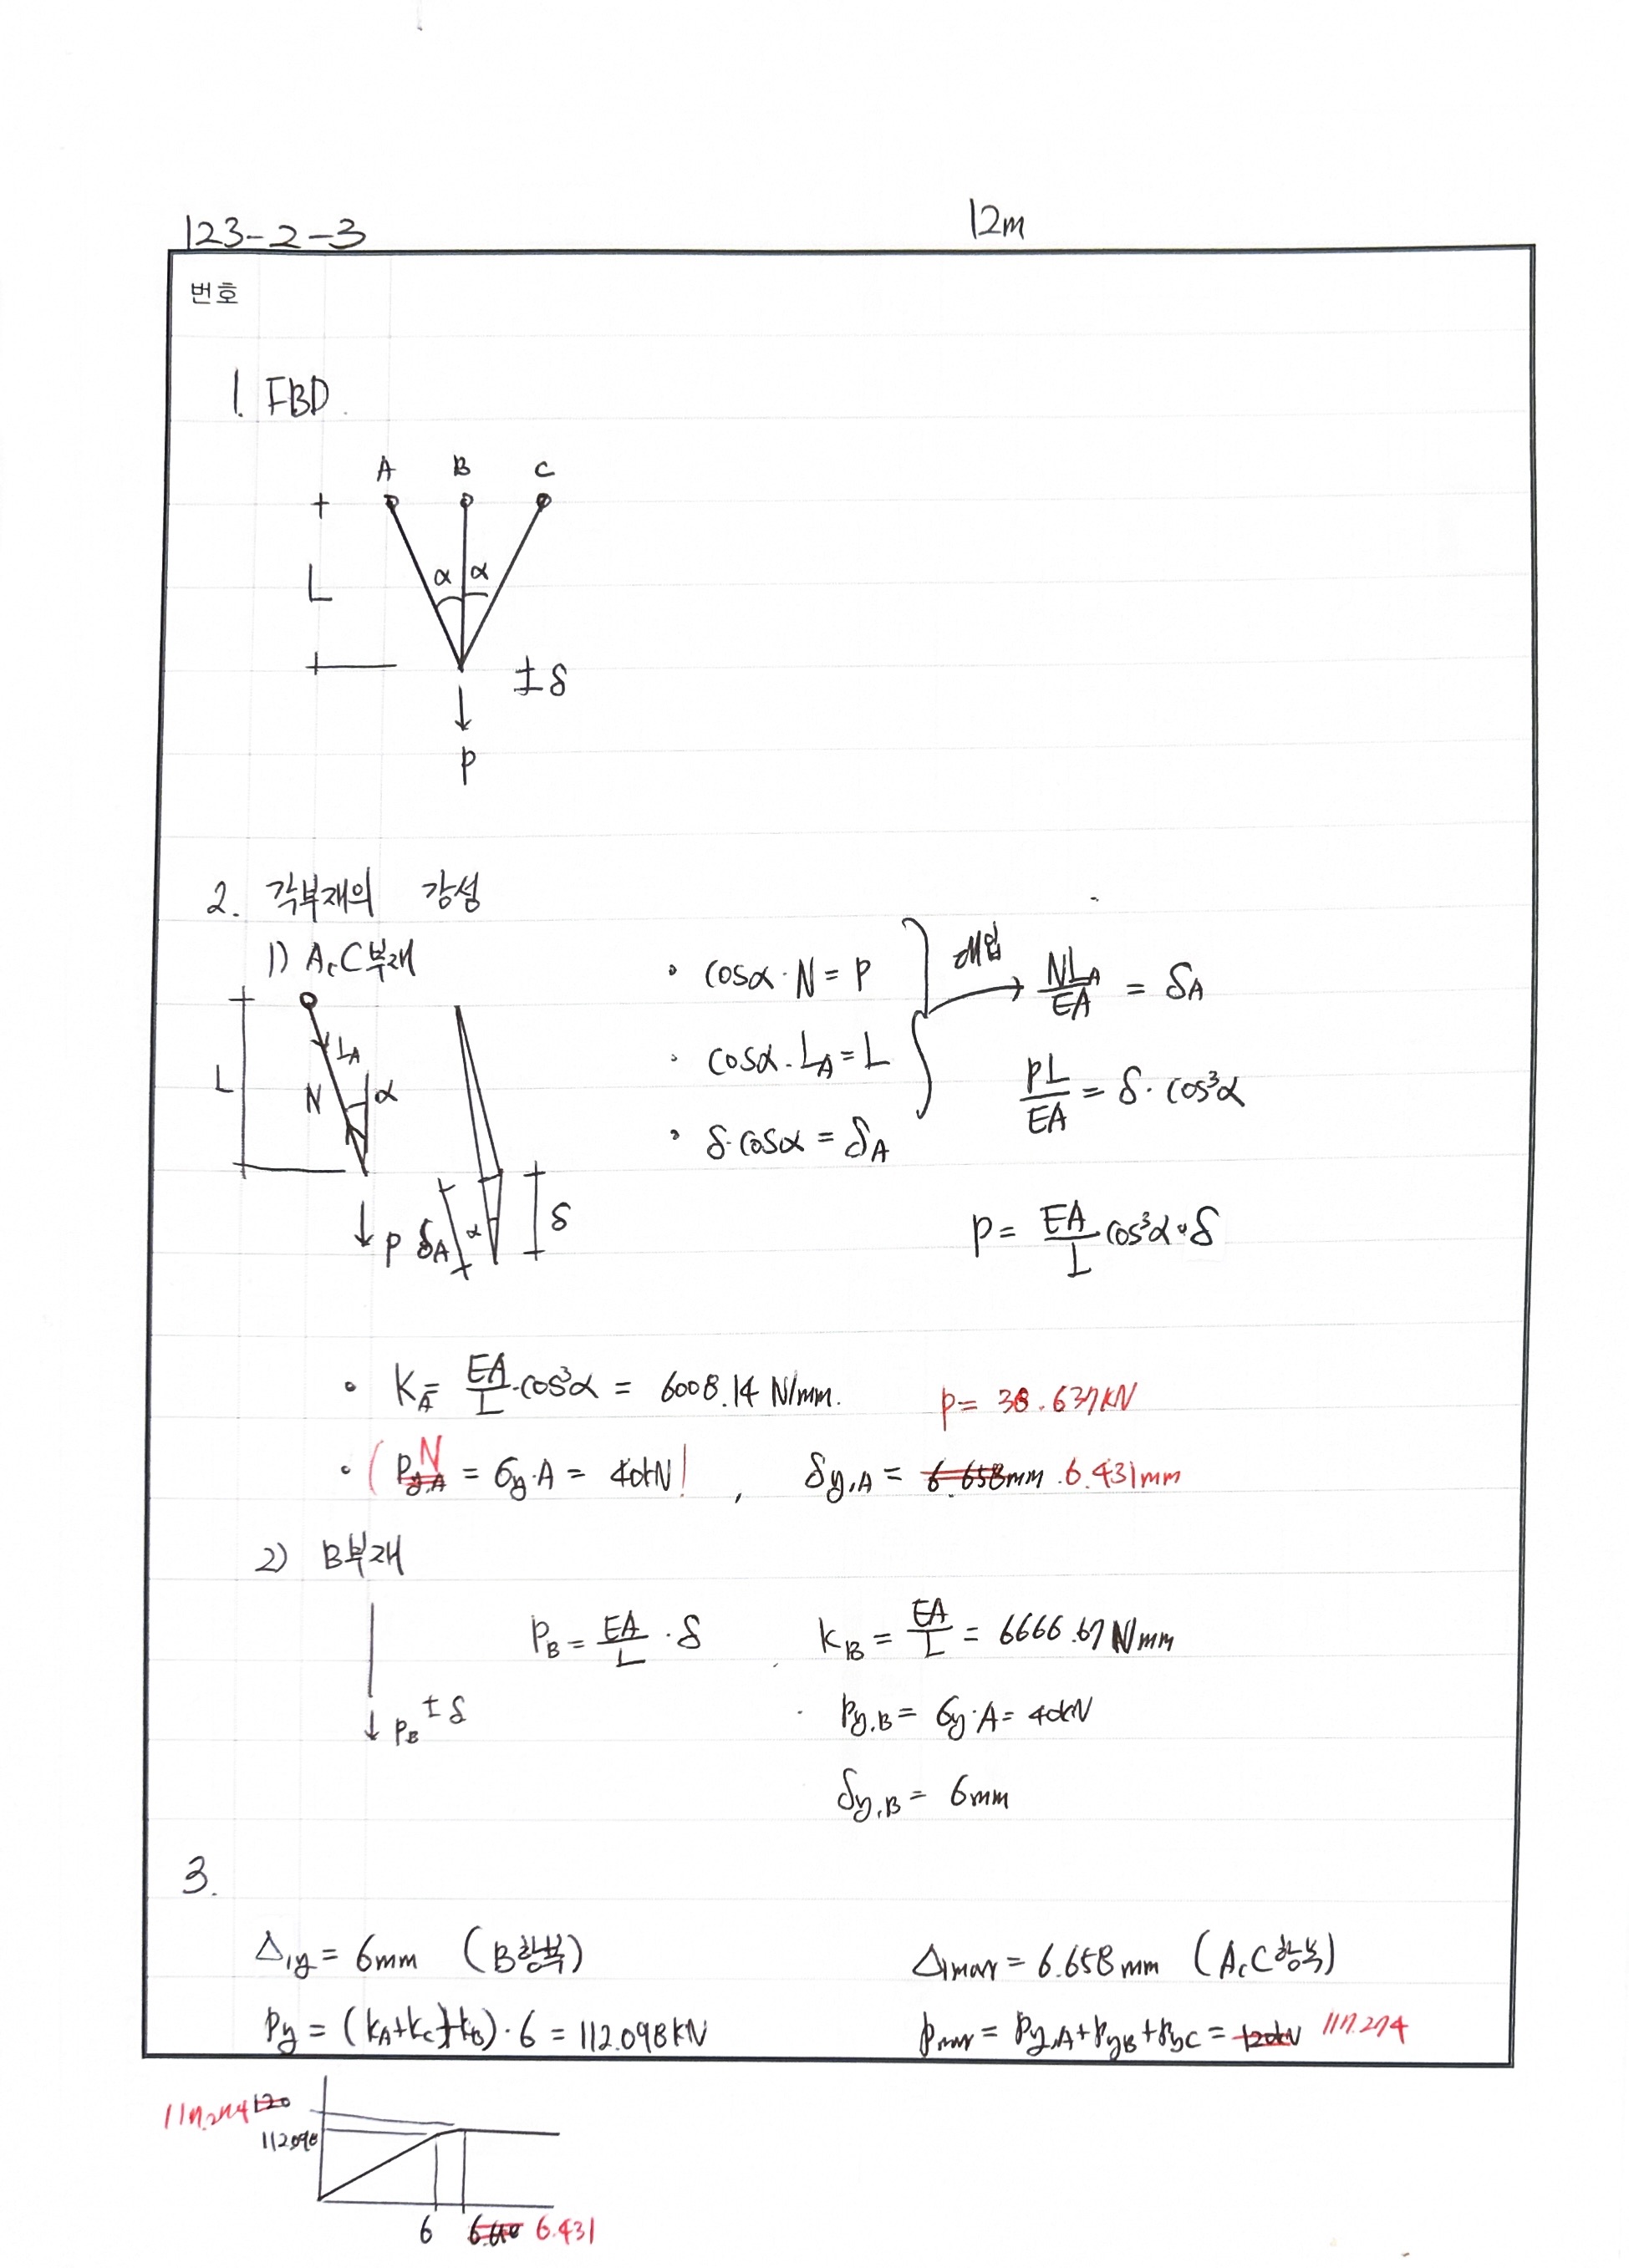 123-2-3
12m
번호
1. FBD.
A B C
L
α α
±δ
P
2. 각부재의 강성
1) A,C부재
L
LA
N
α
P
δA
α
δ
• cosα·N = P
• cosα·LA = L
• δ·cosα = δA
대입
NLA/EA = δA
PL/EA = δ·cos³α
P = EA/L cos³α·δ
• KA = EA/L·cos³α = 6008.14 N/mm.
P = 38.637kN
• (Py,A N = σy·A = 40kN) , δy,A = 6.658mm 6.431mm
2) B부재
PB ±δ
PB = EA/L·δ
KB = EA/L = 6666.67 N/mm
Py,B = σy·A = 40kN
δy,B = 6mm
3.
Δ1y = 6mm (B항복)
Δ1max = 6.658mm (A,C항복)
Py = (KA+KC+KB)·6 = 112.098kN
Pmax = Py,A+PyB+PyC = 120kN 117.274
117.274 120
112.098
6 6.431